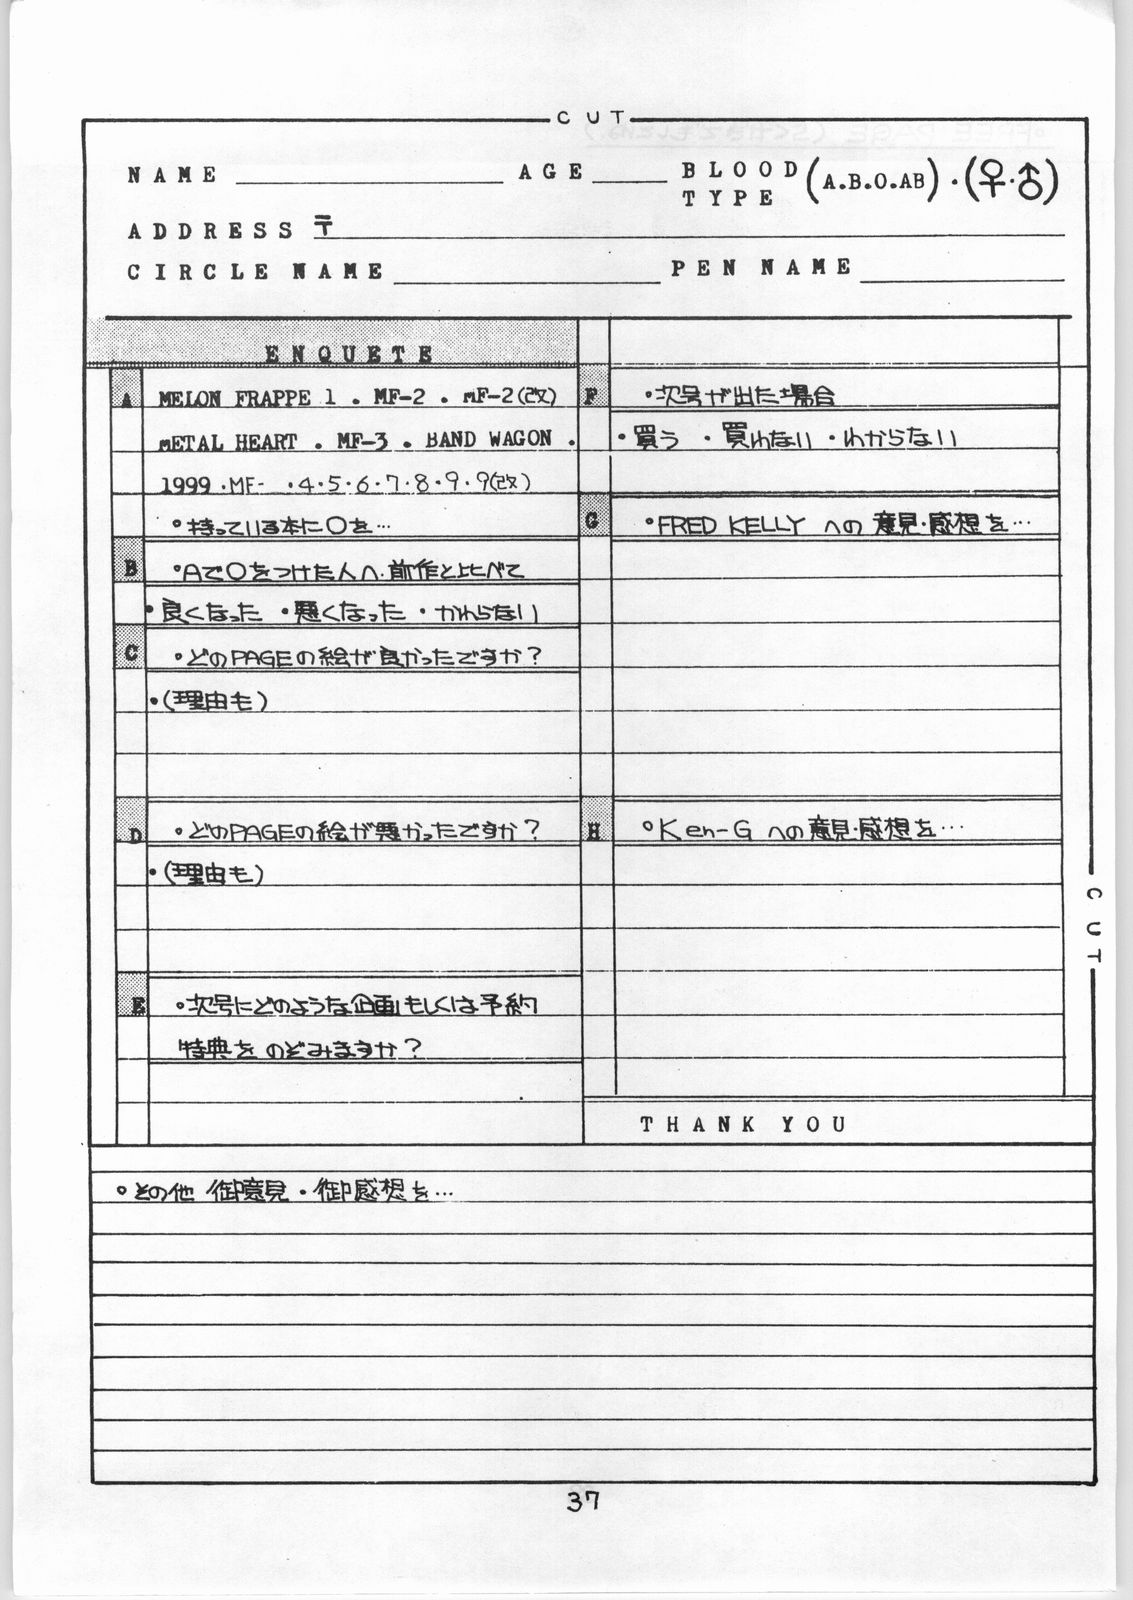 CUT
NAME AGE BLOOD TYPE (A.B.O.AB)・(♀・♂)
ADDRESS 〒
CIRCLE NAME PEN NAME
ENQUETE
A MELON FRAPPE 1 . MF-2 . mF-2(改)
mETAL HEART . MF-3 . BAND WAGON .
1999 ・MF- ・4・5・6・7・8・9・9(改)
°持っている本に○を…
B °Aで○をつけた人へ・前作と比べて
・良くなった ・悪くなった ・かわらない
C °どのPAGEの絵が良かったですか?
・(理由も)
D °どのPAGEの絵が悪かったですか?
・(理由も)
E °次号にどのような企画もしくは予約
特典を のぞみますか?
F ・次号が出た場合
・買う ・買わない ・わからない
G °FRED KELLY への 意見・感想を…
H °Ken-G への意見・感想を…
THANK YOU
CUT
°その他 御意見・御感想を…
37